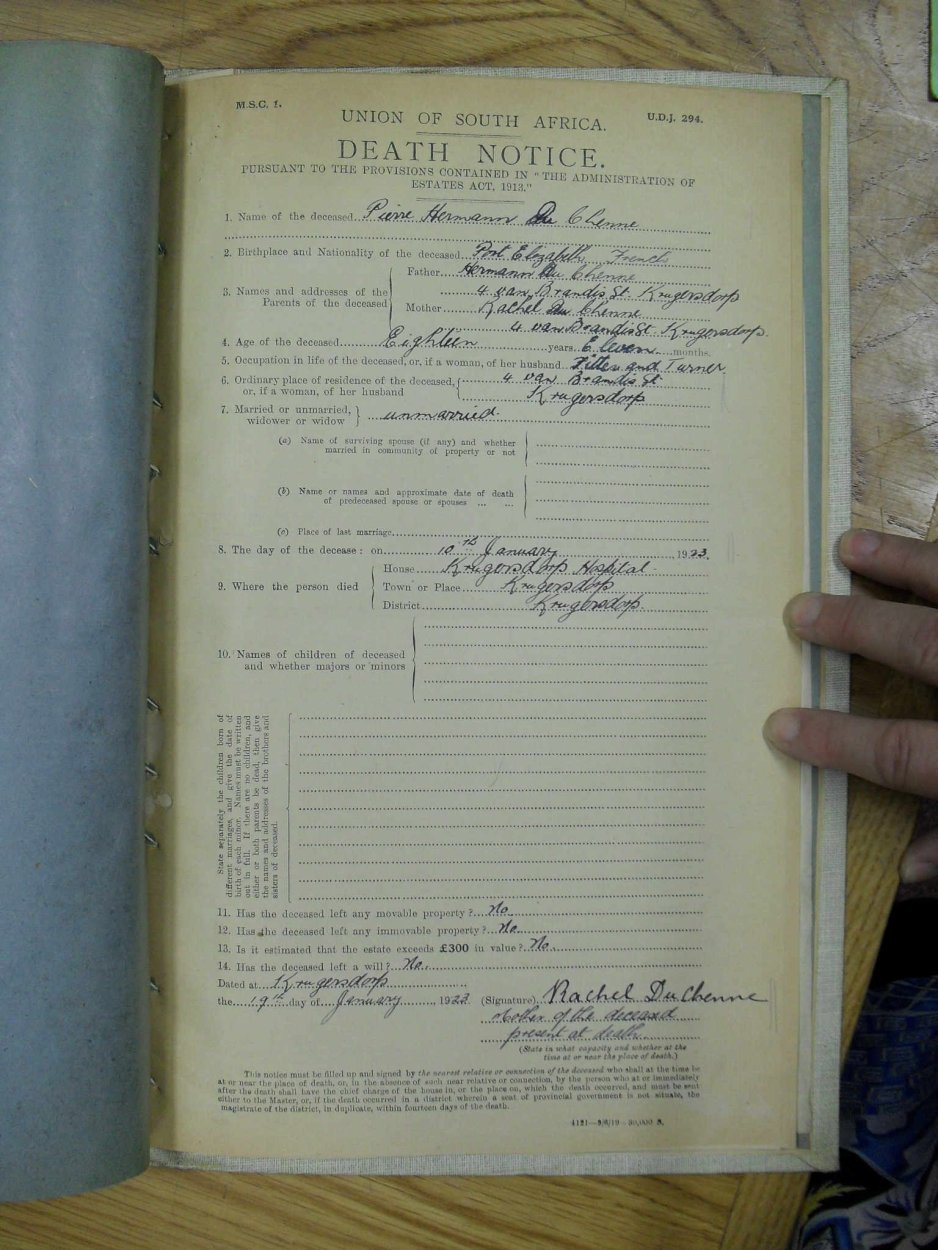 M.S.C. 1.
UNION OF SOUTH AFRICA.
U.D.J. 294.
DEATH NOTICE.
PURSUANT TO THE PROVISIONS CONTAINED IN "THE ADMINISTRATION OF
ESTATES ACT, 1913."
1. Name of the deceased Pierre Hermann Du Chenne
2. Birthplace and Nationality of the deceased Port Elizabeth French
Father Hermann Du Chenne
3. Names and addresses of the 4 van Brandis St Krugersdorp
Parents of the deceased Mother Rachel Du Chenne
4 van Brandis St Krugersdorp
4. Age of the deceased Eighteen years Eleven months.
5. Occupation in life of the deceased, or, if a woman, of her husband Fitter and Turner
6. Ordinary place of residence of the deceased, 4 van Brandis St
or, if a woman, of her husband Krugersdorp
7. Married or unmarried, unmarried
widower or widow
(a) Name of surviving spouse (if any) and whether
married in community of property or not
(b) Name or names and approximate date of death
of predeceased spouse or spouses ... ...
(c) Place of last marriage
8. The day of the decease: on 10th January 1923.
House Krugersdorp Hospital
9. Where the person died Town or Place Krugersdorp
District Krugersdorp
10. Names of children of deceased
and whether majors or minors
State separately the children born of
different marriages, and give the date of
birth of each minor. Names must be written
out in full. If there are no children, and
either or both parents be dead, then give
the names and addresses of the brothers and
sisters of deceased.
11. Has the deceased left any movable property? No
12. Has the deceased left any immovable property? No
13. Is it estimated that the estate exceeds £300 in value? No
14. Has the deceased left a will? No
Dated at Krugersdorp
the 19th day of January, 1923 (Signature) Rachel DuChenne
Mother of the deceased
present at death
(State in what capacity and whether at the
time at or near the place of death.)
This notice must be filled up and signed by the nearest relative or connection of the deceased who shall at the time be
at or near the place of death, or, in the absence of such near relative or connection, by the person who at or immediately
after the death shall have the chief charge of the house in, or the place on, which the death occurred, and must be sent
either to the Master, or, if the death occurred in a district wherein a seat of provincial government is not situate, the
magistrate of the district, in duplicate, within fourteen days of the death.